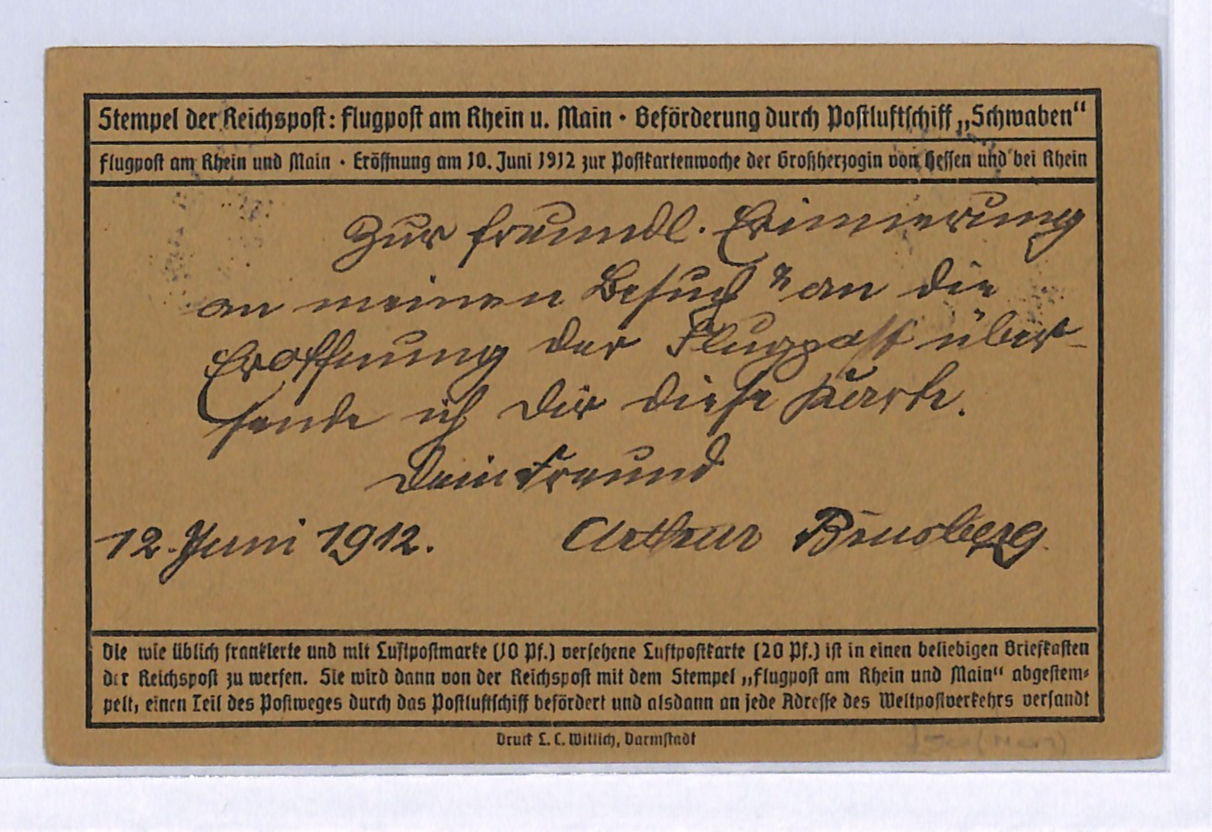 Stempel der Reichspost: Flugpost am Rhein u. Main · Beförderung durch Postluftschiff „Schwaben“
Flugpost am Rhein und Main · Eröffnung am 10. Juni 1912 zur Postkartenwoche der Großherzogin von Hessen und bei Rhein
Zur freundl. Erinnerung
an meinen Besuch an die
Eröffnung der Flugpost über-
sende ich Dir diese Karte.
Dein Freund
12. Juni 1912. Arthur Brusberg.
Die wie üblich frankierte und mit Luftpostmarke (10 Pf.) versehene Luftpostkarte (20 Pf.) ist in einen beliebigen Briefkasten
der Reichspost zu werfen. Sie wird dann von der Reichspost mit dem Stempel „Flugpost am Rhein und Main“ abgestem-
pelt, einen Teil des Postweges durch das Postluftschiff befördert und alsdann an jede Adresse des Weltpostverkehrs versandt
Druck L. C. Wittich, Darmstadt